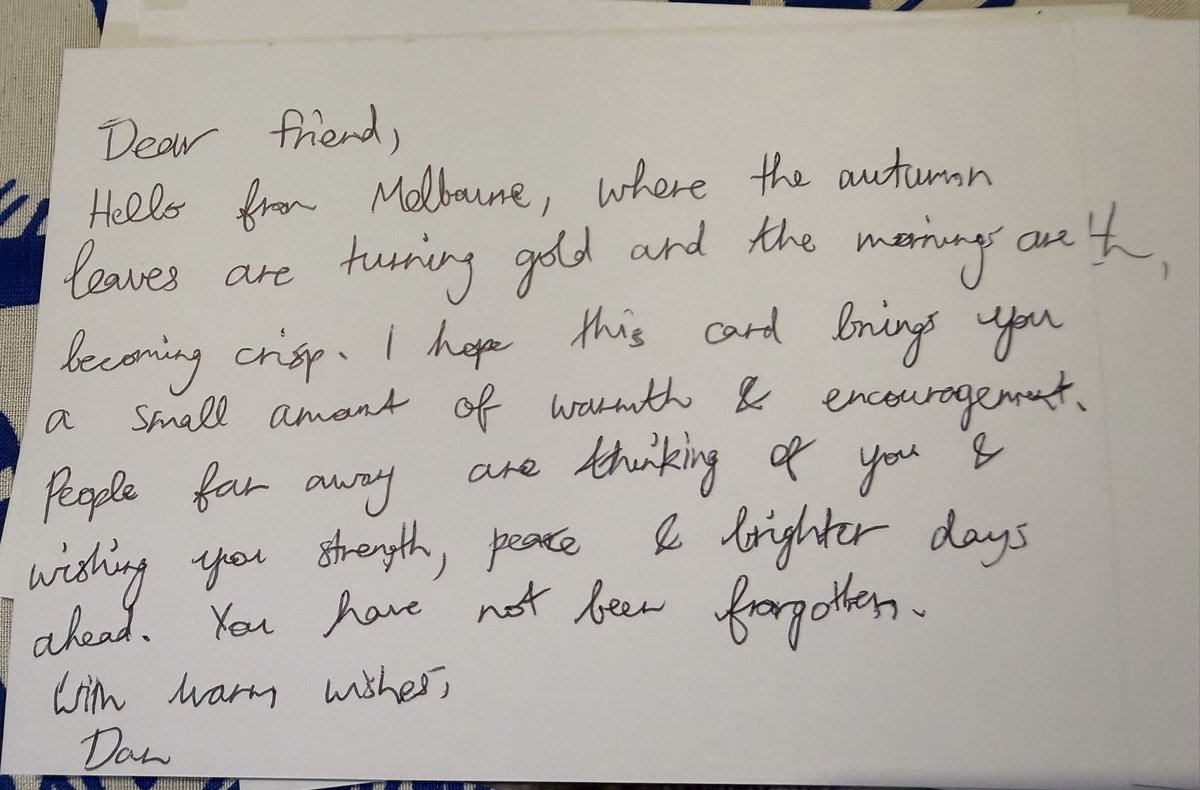 Dear friend,
Hello from Melbourne, where the autumn
leaves are turning gold and the mornings are
becoming crisp. I hope this card brings you
a small amount of warmth & encouragement.
People far away are thinking of you &
wishing you strength, peace & brighter days
ahead. You have not been forgotten.
With warm wishes,
Dan